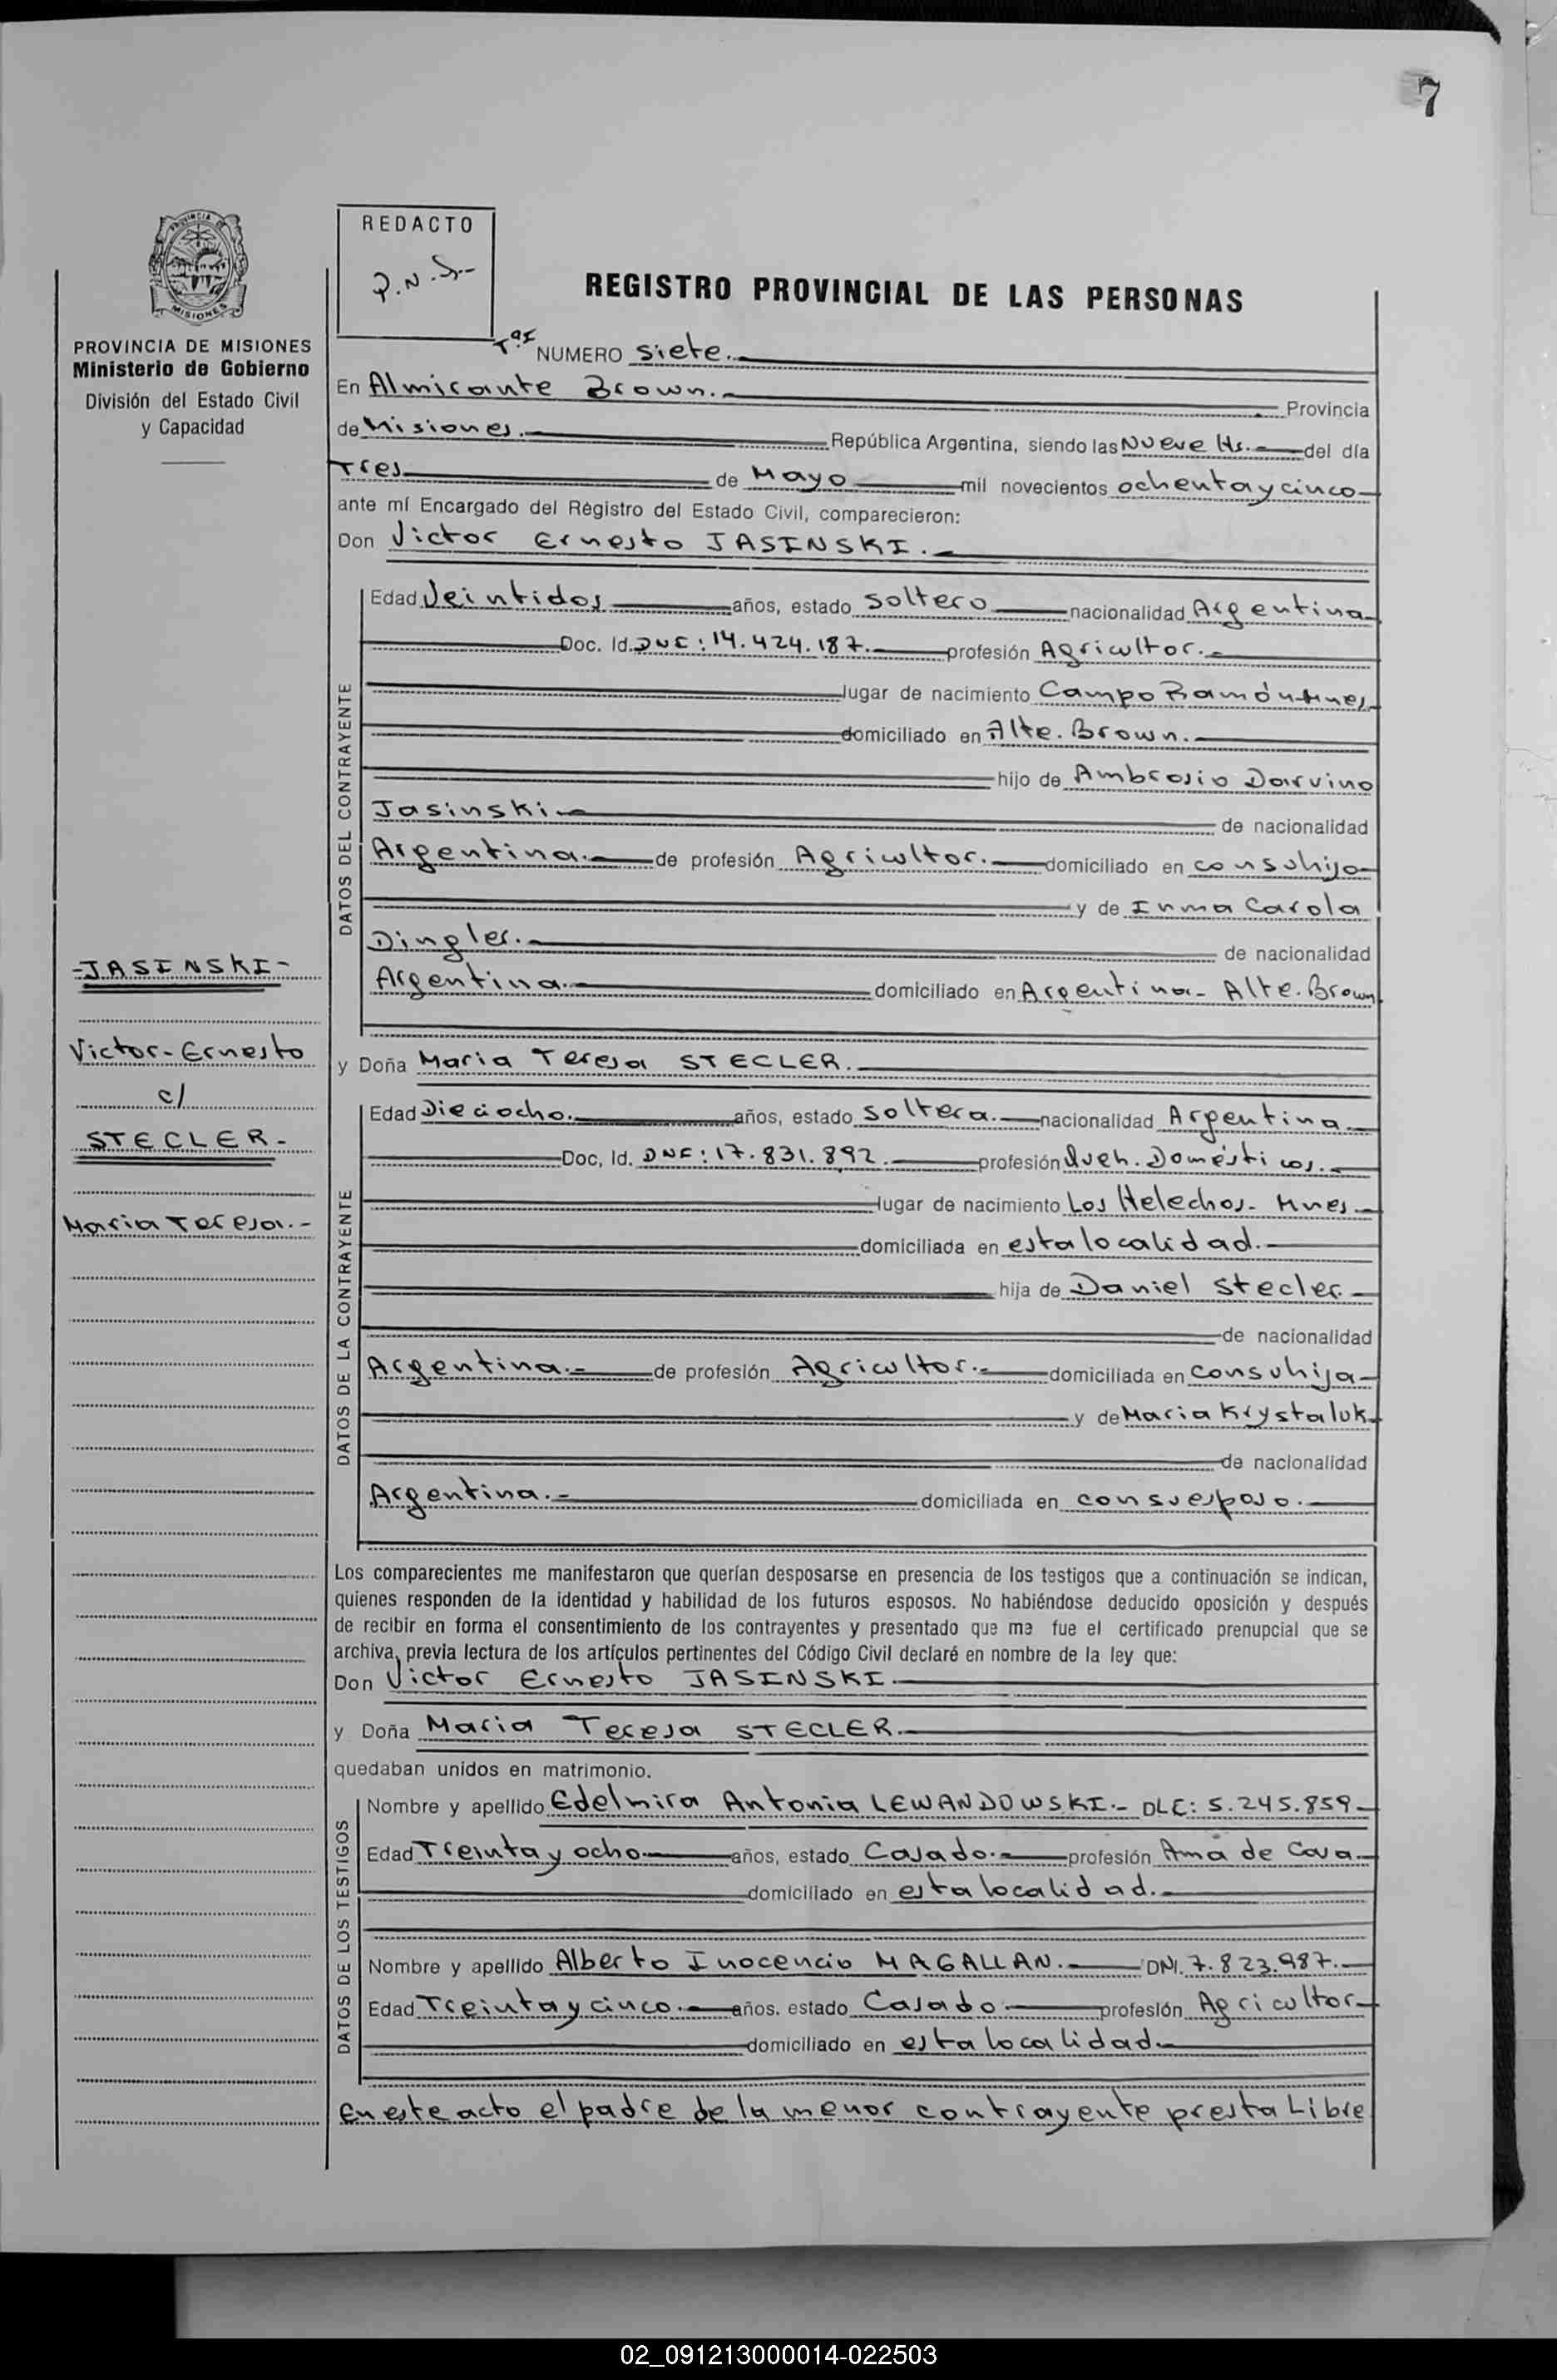 7
PROVINCIA DE MISIONES
Ministerio de Gobierno
División del Estado Civil
y Capacidad
-JASINSKI-
Victor-Ernesto
c/
STECLER-
Maria Teresa.-
REDACTO
REGISTRO PROVINCIAL DE LAS PERSONAS
NUMERO siete.
En Almirante Brown. Provincia
de Misiones. República Argentina, siendo las Nueve Hs. del día
Tres de Mayo mil novecientos ochentay cinco
ante mí Encargado del Régistro del Estado Civil, comparecieron:
Don Victor Ernesto JASINSKI.
DATOS DEL CONTRAYENTE
Edad Veintidos años, estado soltero nacionalidad Argentina
Doc. Id. DNI: 14.424.187. profesión Agricultor.
lugar de nacimiento Campo Ramón-Mnes
domiciliado en Alte. Brown.
hijo de Ambrosio Darvino
Jasinski de nacionalidad
Argentina. de profesión Agricultor. domiciliado en con su hijo
y de Inma Carola
Dingler. de nacionalidad
Argentina. domiciliado en Argentina- Alte. Brown
y Doña Maria Teresa STECLER.
DATOS DE LA CONTRAYENTE
Edad Dieciocho. años, estado soltera. nacionalidad Argentina
Doc, Id. DNI: 17.831.892. profesión Queh. Domésticos.
lugar de nacimiento Los Helechos- Mnes
domiciliada en esta localidad.
hija de Daniel Stecler
de nacionalidad
Argentina.- de profesión Agricultor.- domiciliada en con su hija
y de Maria Krystaluk
de nacionalidad
Argentina.- domiciliada en con su esposo.
Los comparecientes me manifestaron que querían desposarse en presencia de los testigos que a continuación se indican,
quienes responden de la identidad y habilidad de los futuros esposos. No habiéndose deducido oposición y después
de recibir en forma el consentimiento de los contrayentes y presentado que me fue el certificado prenupcial que se
archiva, previa lectura de los artículos pertinentes del Código Civil declaré en nombre de la ley que:
Don Victor Ernesto JASINSKI.
y Doña Maria Teresa STECLER.
quedaban unidos en matrimonio.
DATOS DE LOS TESTIGOS
Nombre y apellido Edelmira Antonia LEWANDOWSKI.- DLC: 5.245.859
Edad Treinta y ocho años, estado Casado. profesión Ama de Casa
domiciliado en esta localidad.
Nombre y apellido Alberto Inocencio MAGALLAN. DNI. 7.823.987.
Edad Treinta y cinco. años. estado Casado profesión Agricultor
domiciliado en esta localidad
En este acto el padre de la menor contrayente presta Libre
02_091213000014-022503